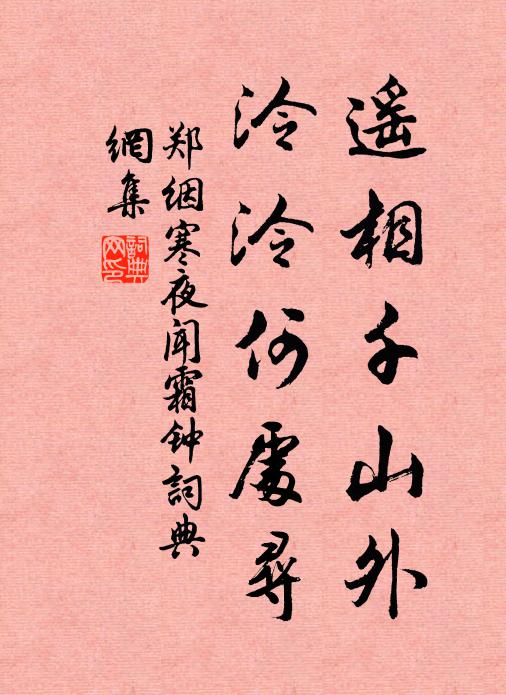 遥相千山外
泠泠何處尋
郑絪寒夜闻霜钟詞典
網集
詞典
网印